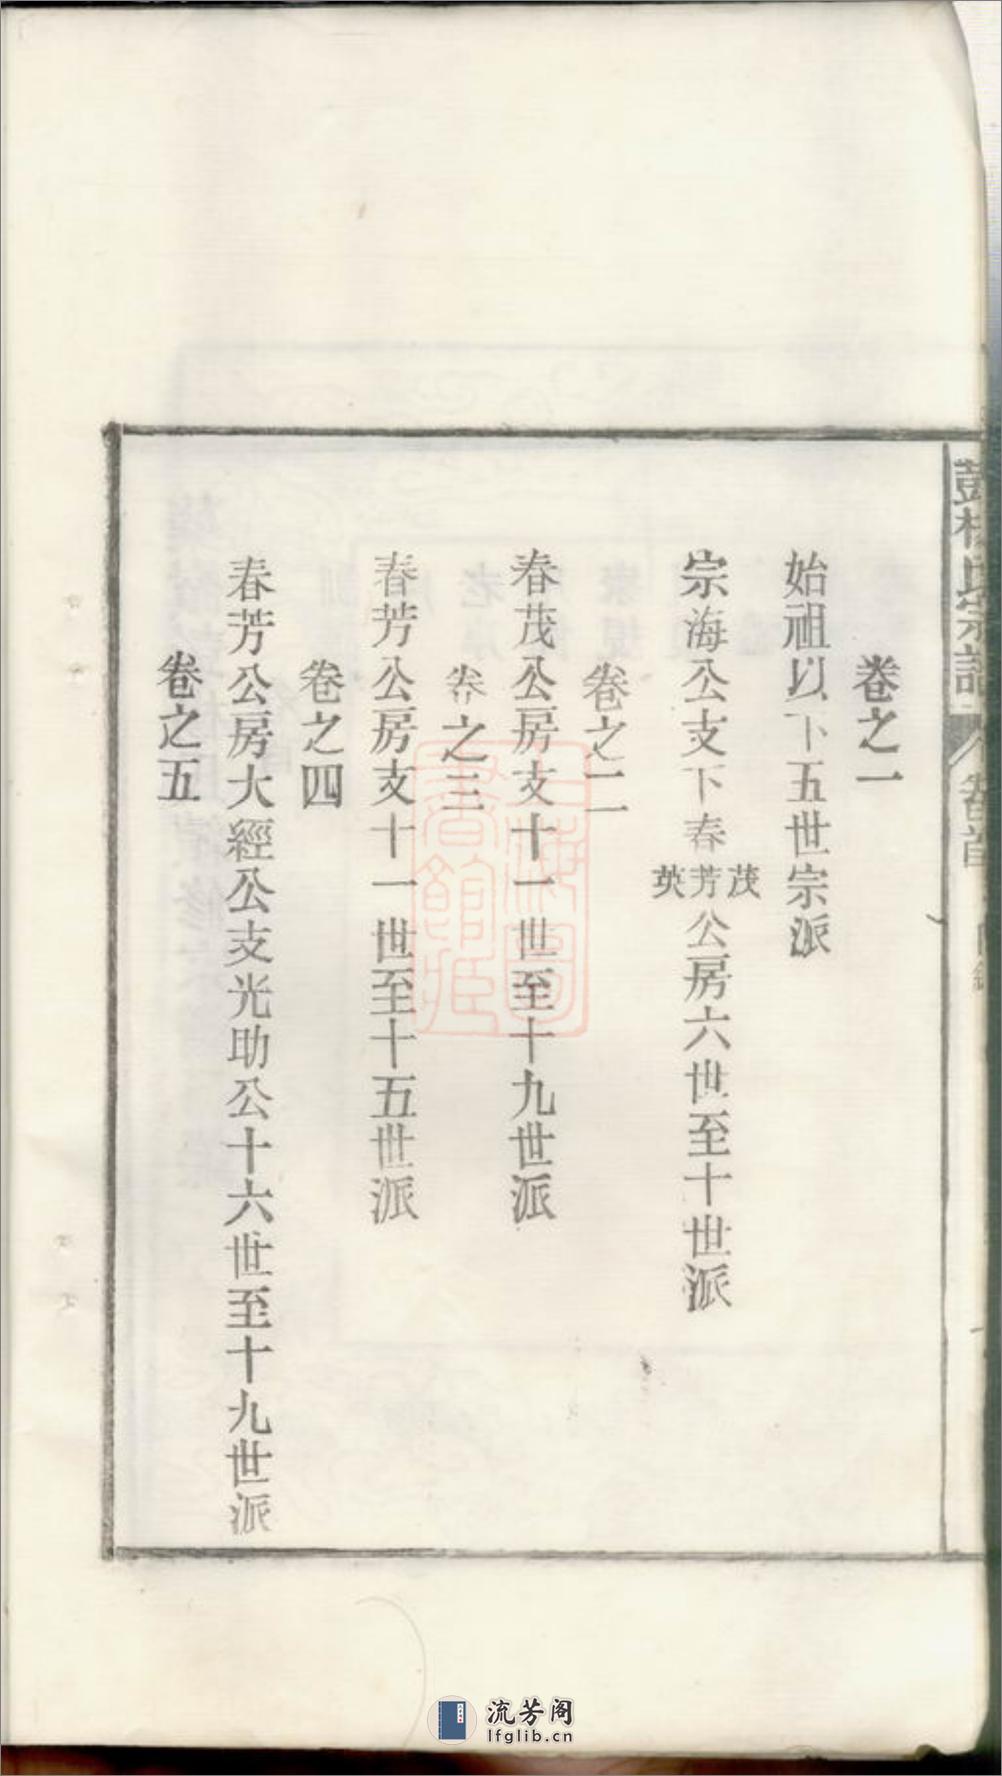 彭楊氏宗譜
卷首
卷之一
始祖以下五世宗派
宗海公支下春茂芳英公房六世至十世派
卷之二
春茂公房支十一世至十九世派
卷之三
春芳公房支十一世至十五世派
卷之四
春芳公房大經公支光助公十六世至十九世派
卷之五
上海圖書館藏
流芳阁
lfglib.cn